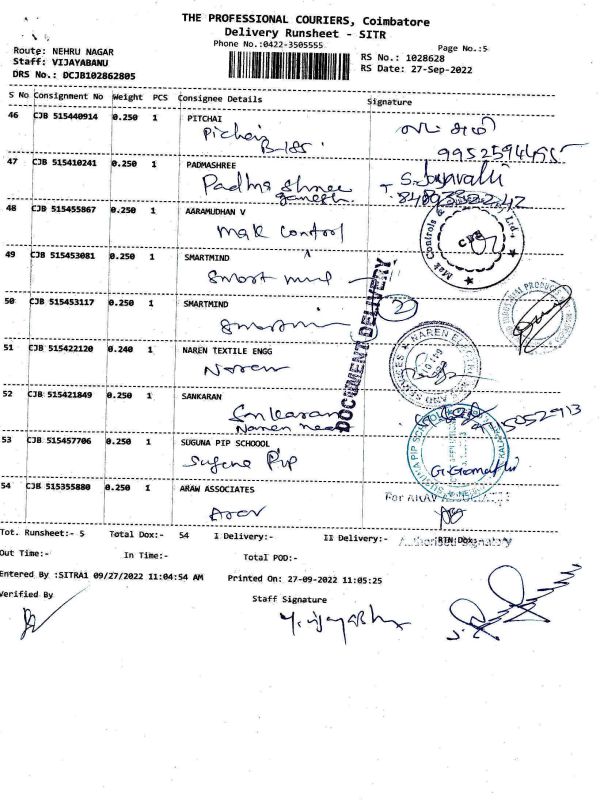 THE PROFESSIONAL COURIERS, Coimbatore
Delivery Runsheet - SITR
Phone No.:0422-3505555
Page No.:5
Route: NEHRU NAGAR
Staff: VIJAYABANU
DRS No.: DCJB102862805
RS No.: 1028628
RS Date: 27-Sep-2022
S No Consignment No Weight PCS Consignee Details Signature
46 CJB 515440914 0.250 1 PITCHAI
Pichai
B-185
47 CJB 515410241 0.250 1 PADMASHREE
Padma Shree
ganesh
48 CJB 515455867 0.250 1 AARAMUDHAN V
Mak Control
Mak Controls &
49 CJB 515453081 0.250 1 SMARTMIND
Smart mind
50 CJB 515453117 0.250 1 SMARTMIND
2
DOCUMENT DELIVERY
51 CJB 515422120 0.240 1 NAREN TEXTILE ENGG
Naren
52 CJB 515421849 0.250 1 SANKARAN
Naren near
53 CJB 515457706 0.250 1 SUGUNA PIP SCHOOOL
Suguna Pip
G. Gomathi
54 CJB 515355880 0.250 1 ARAW ASSOCIATES
Arav
For ARAV ASSOCIATES
Authorised Signatory
Tot. Runsheet:- 5 Total Dox:- 54 I Delivery:- II Delivery:- RTN Dox:-
Out Time:- In Time:- Total POD:-
Entered By :SITRA1 09/27/2022 11:04:54 AM Printed On: 27-09-2022 11:05:25
Verified By
Staff Signature